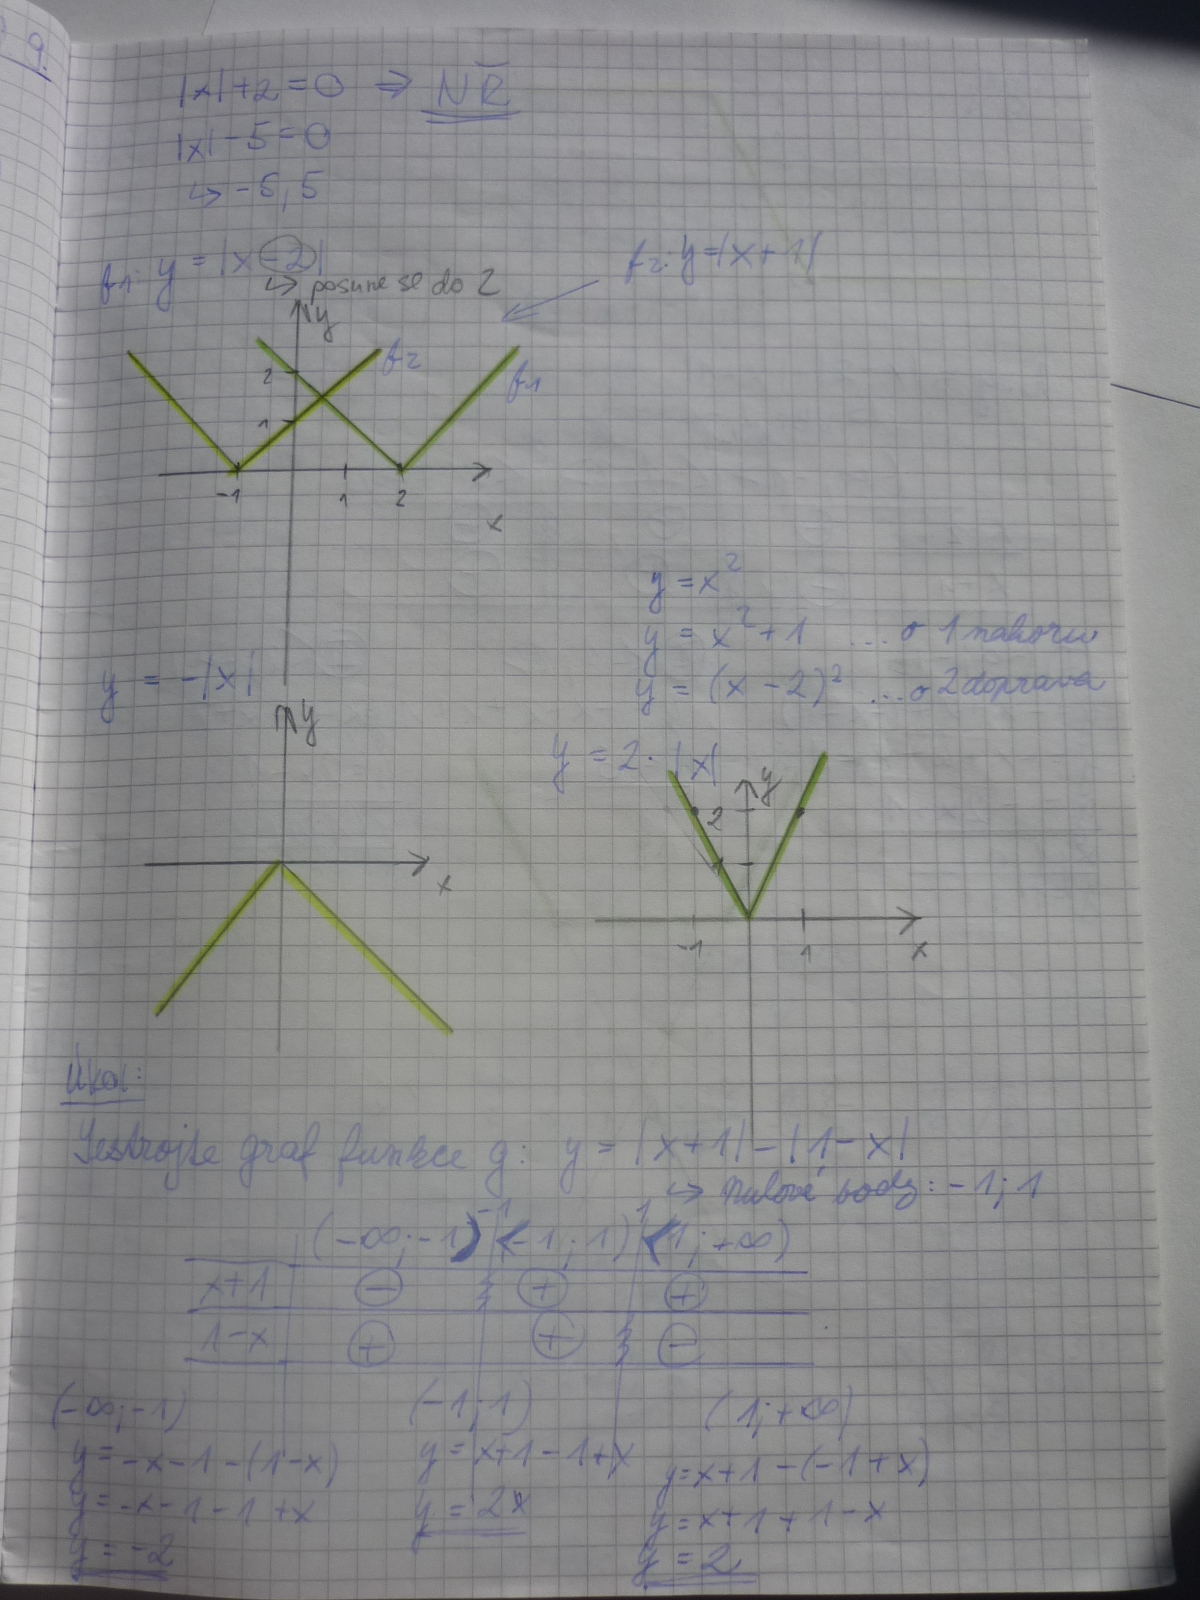 9.
|x|+2=0 ⇒ NŘ
|x|-5=0
↳ -5, 5
f1: y = |x-2|
↳ posune se do 2
f2: y=|x+1|
y
f2
f1
2
1
-1 1 2
x
y = x²
y = x²+1 ... o 1 nahoru
y = (x-2)² ... o 2 doprava
y = -|x|
y
x
y = 2·|x|
y
2
1
-1 1
x
Úkol:
Sestrojte graf funkce g: y = |x+1| - |1-x|
↳ nulové body: -1; 1
-1 1
(-∞; -1) <-1; 1) <1; +∞)
x+1 - + +
1-x + + -
(-∞; -1) (-1; 1) (1; +∞)
y= -x-1-(1-x) y = x+1-1+x y=x+1-(-1+x)
y= -x-1-1+x y = 2x y=x+1+1-x
y = -2 y = 2